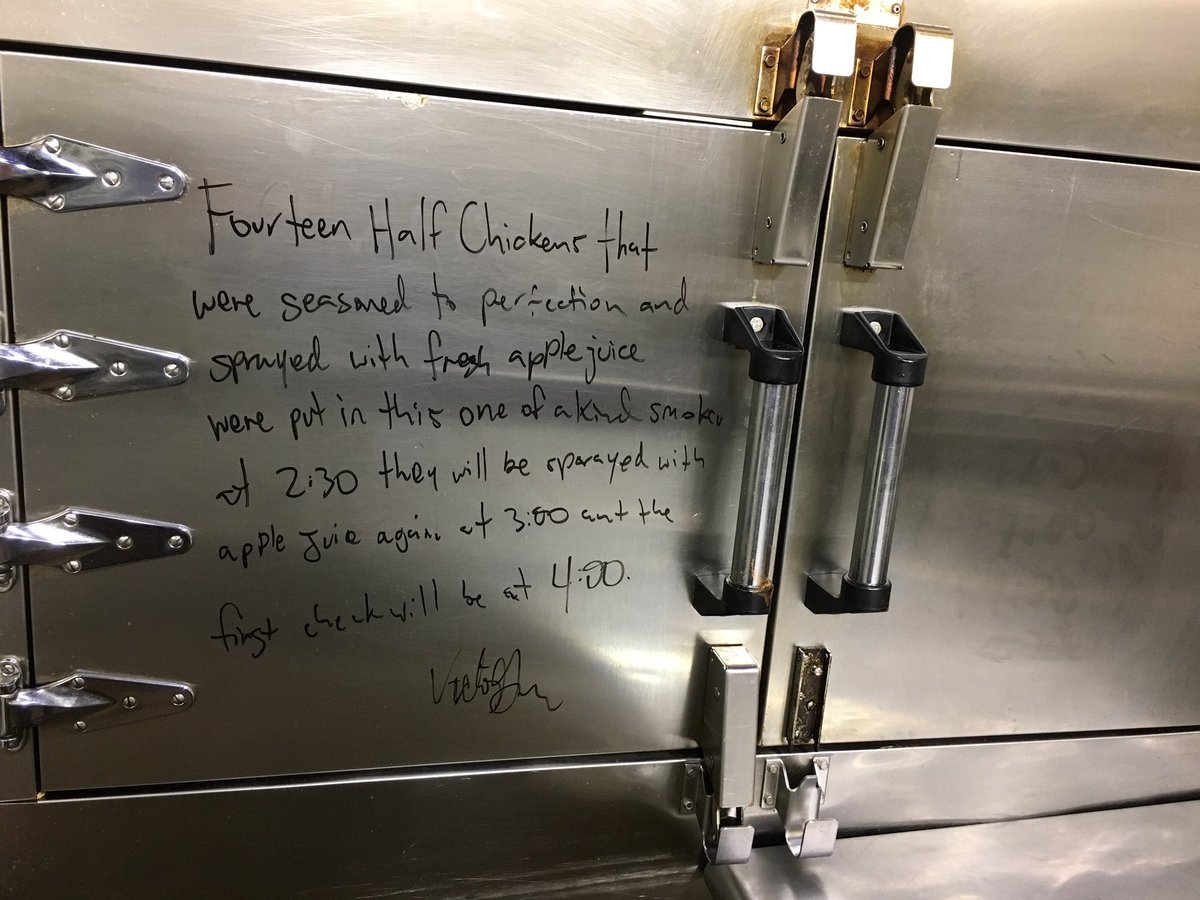 Fourteen Half Chickens that
were seasoned to perfection and
sprayed with fresh apple juice
were put in this one of a kind smoker
at 2:30 they will be sparayed with
apple Juie again at 3:00 ant the
first check will be at 4:00.